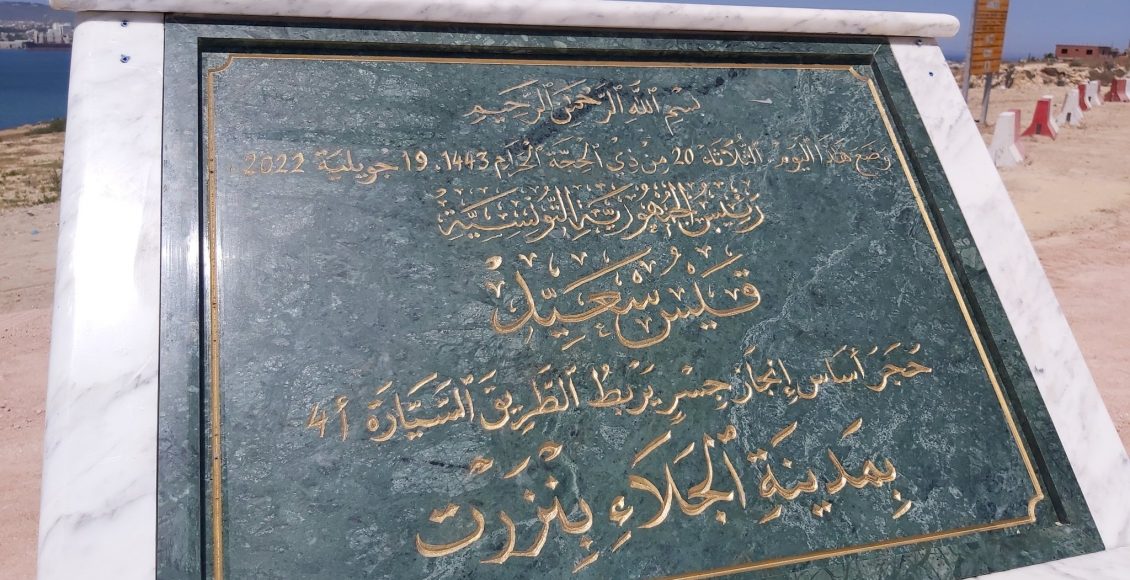 بِسْمِ ٱللَّهِ ٱلرَّحْمَٰنِ ٱلرَّحِيمِ
وضع هذا اليوم، الثلاثاء 20 من ذي الحجّة الحرام 1443، 19 جويلية 2022،
رئيس الجمهوريّة التّونسيّة
قَيْس سَعَيِّدْ
حُجَرَ أَسَاسِ إِنجَازِ جِسْرٍ يَرْبِطُ ٱلطَّرِيقَ ٱلسَّيَّارَةَ أ4
بِمَدِينَةِ ٱلجَلَاءِ بِنْزَرْتْ